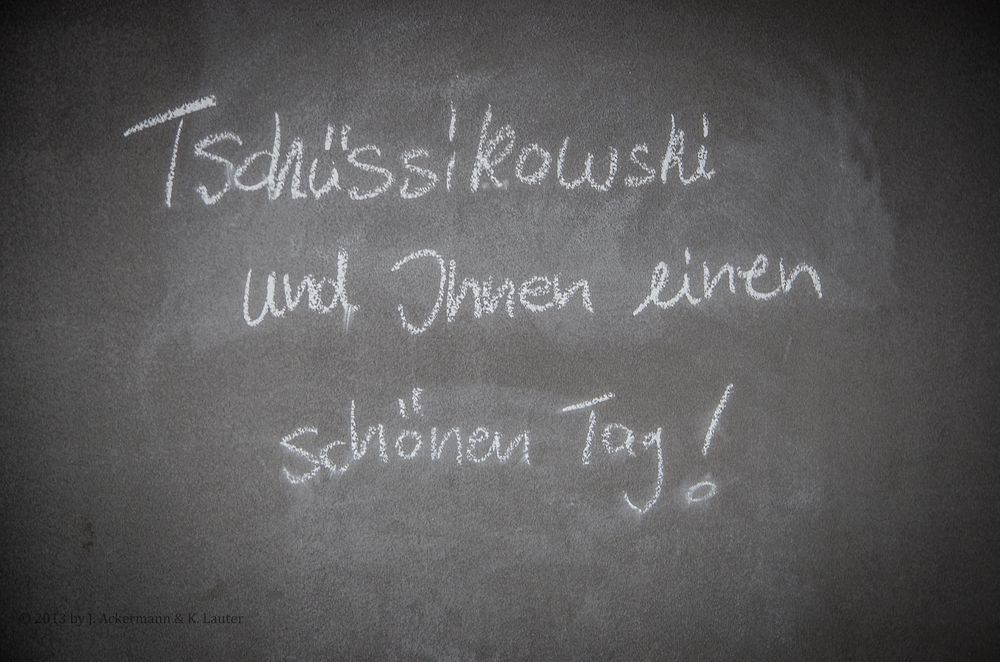 Tschüssikowski
und Ihnen einen
schönen Tag!
© 2013 by J. Ackermann & K. Lauter